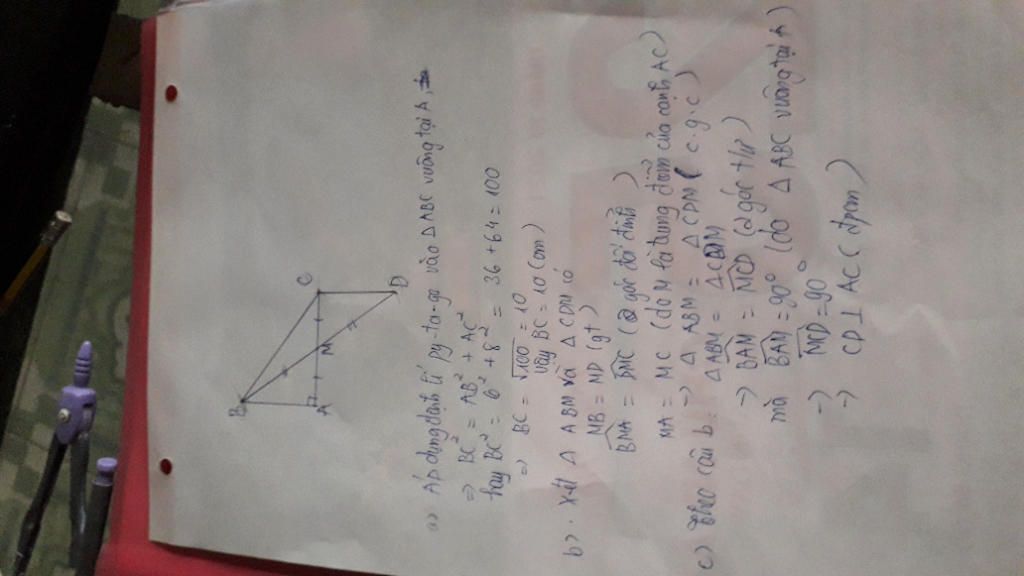 B
C
A
M
D
a) Áp dụng định lí py-ta-go vào Δ ABC vuông tại A,
=> BC² = AB² + AC²
hay BC² = 6² + 8² = 36 + 64 = 100
=> BC = √100 = 10
vậy BC = 10 (cm)
b) . Xét Δ ABM và Δ CDM có
MB = MD (gt)
BMA = DMC (2 góc đối đỉnh)
MA = MC (do M là trung điểm của cạnh AC)
=> Δ ABM = Δ CDM (c.g.c)
c) Theo câu b: Δ ABM = Δ CDM
=> BAM = MCD (2 góc t/ư)
mà BAM = 90° (do Δ ABC vuông tại A)
=> MCD = 90°
=> CD ⊥ AC (đpcm)